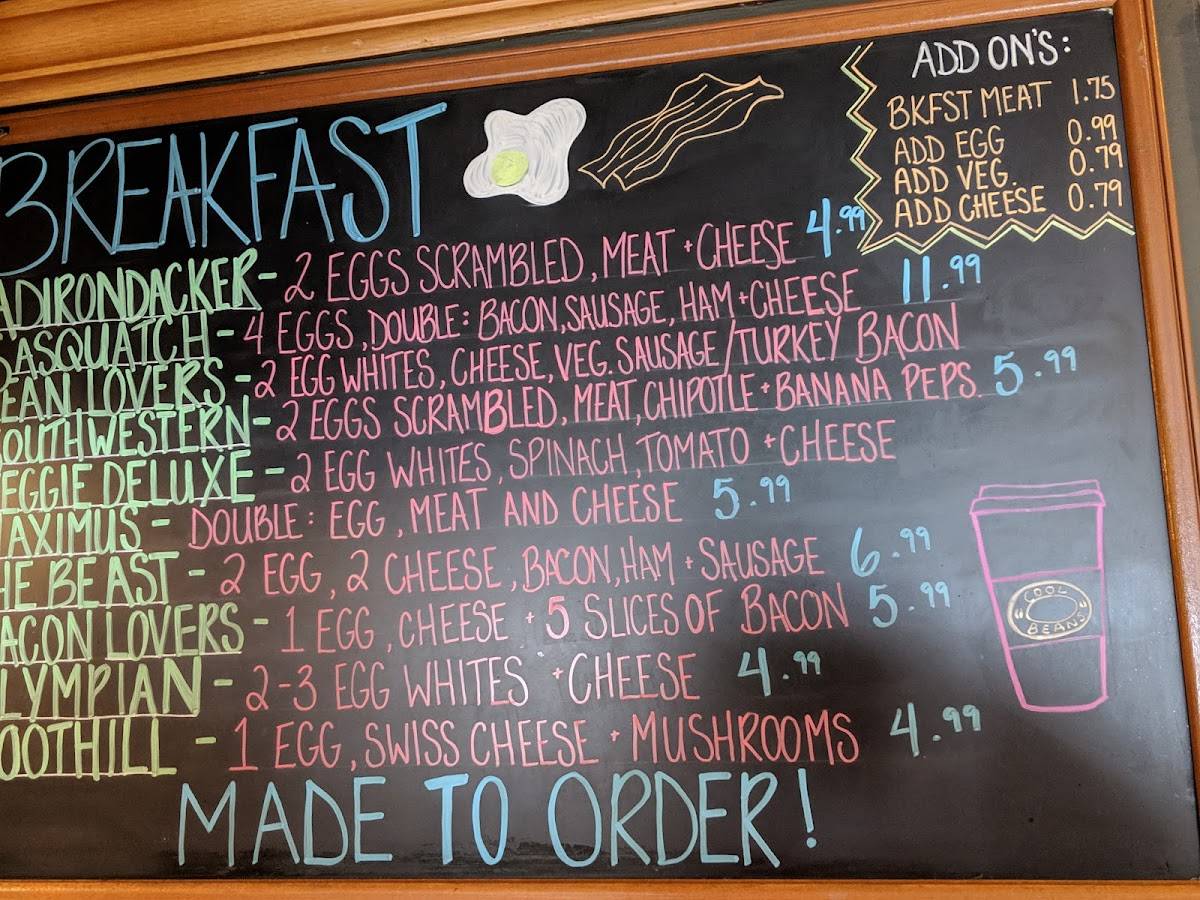 BREAKFAST
ADIRONDACKER - 2 EGGS SCRAMBLED, MEAT + CHEESE 4.99
SASQUATCH - 4 EGGS, DOUBLE: BACON, SAUSAGE, HAM + CHEESE 11.99
EAN LOVERS - 2 EGG WHITES, CHEESE, VEG. SAUSAGE/TURKEY BACON
SOUTHWESTERN - 2 EGGS SCRAMBLED, MEAT, CHIPOTLE + BANANA PEPS. 5.99
EGGIE DELUXE - 2 EGG WHITES, SPINACH, TOMATO + CHEESE
MAXIMUS - DOUBLE: EGG, MEAT AND CHEESE 5.99
HE BEAST - 2 EGG, 2 CHEESE, BACON, HAM + SAUSAGE 6.99
ACON LOVERS - 1 EGG, CHEESE + 5 SLICES OF BACON 5.99
LYMPIAN - 2-3 EGG WHITES + CHEESE 4.99
OOTHILL - 1 EGG, SWISS CHEESE + MUSHROOMS 4.99
MADE TO ORDER!
ADD ON'S:
BKFST MEAT 1.75
ADD EGG 0.99
ADD VEG. 0.79
ADD CHEESE 0.79
COOL
BEANS